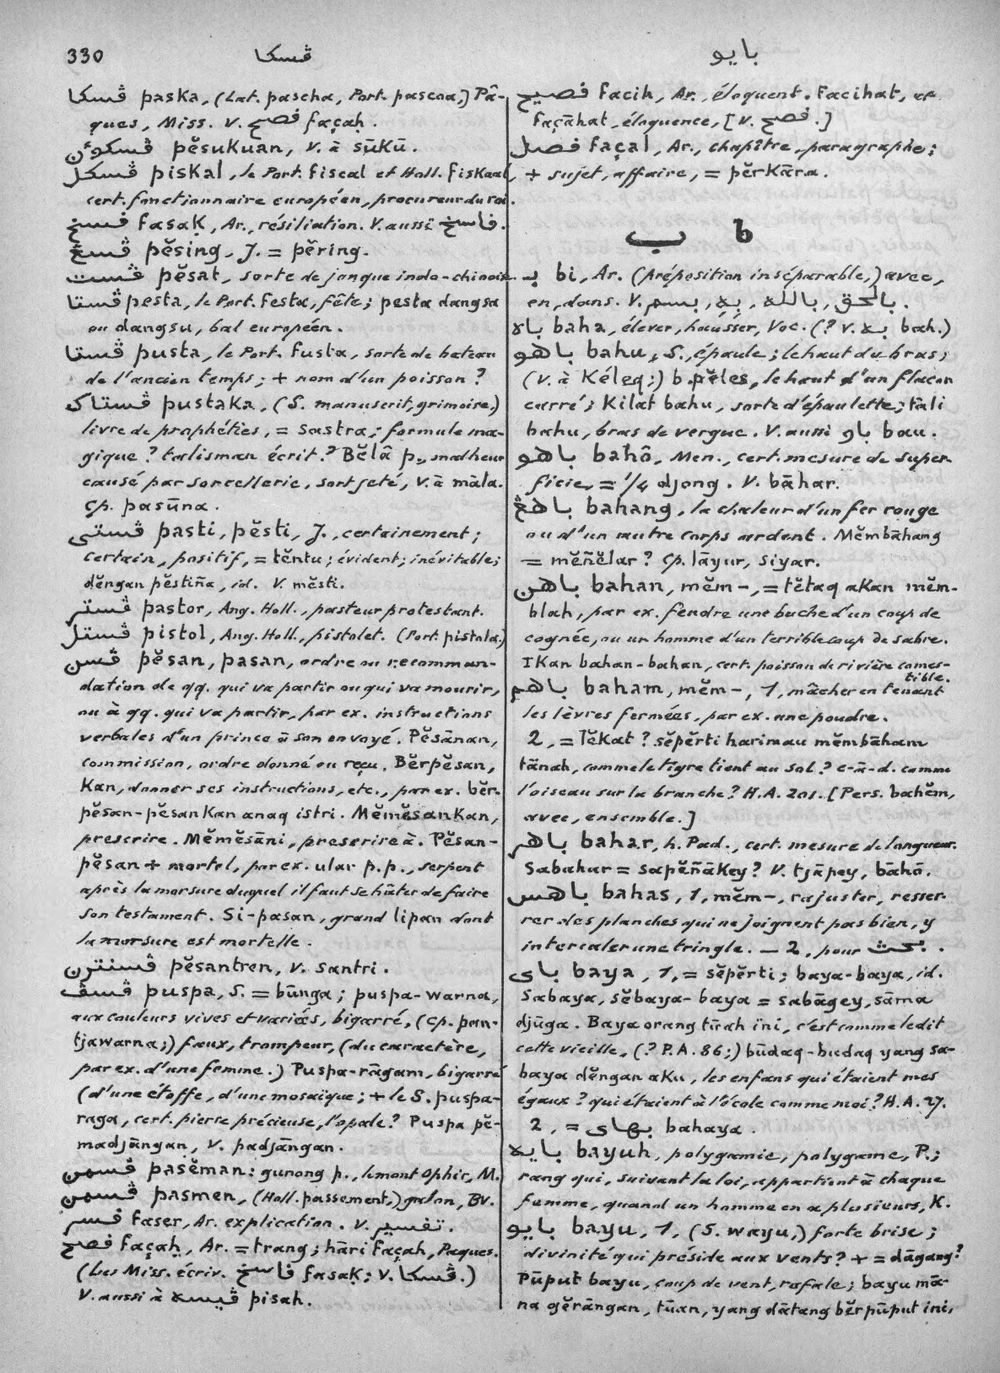 330
ڤسكا
بايو
ڤسكا paska, (Lat. pascha, Port. pascoa,) Pâ-
ques, Miss. V. فصح façaḥ.
ڤسكوئن pĕsukuan, V. à sūkū.
ڤسكل piskal, le Port. fiscal et Holl. fiskaal,
cert. fonctionnaire européen, procureur du roi.
فسخ fasaḳ, Ar., résiliation. V. aussi فاسخ.
ڤسڠ pĕsing, J. = pĕring.
ڤست pĕsat, sorte de jonque indo-chinoise
ڤستا pesta, le Port. festa, fête; pesta dangsa
ou dangsu, bal européen.
ڤستا pusta, le Port. fusta, sorte de bateau
de l'ancien temps; + nom d'un poisson?
ڤستاک pustaka, (S. manuscrit, grimoire,)
livre de prophéties, = sastra; formule ma-
gique? talisman écrit? Bĕlā p., malheur
causé par sorcellerie, sort jeté, V. à māla.
Cp. pasūna.
ڤستي pasti, pĕsti, J., certainement;
certain, positif, = tĕntu; évident; inévitable;
dĕngan pĕstiña, id. V. mĕsti.
ڤستر pastor, Ang. Holl., pasteur protestant.
ڤستل pistol, Ang. Holl., pistolet. (Port. pistola,)
ڤسن pĕsan, pasan, ordre ou recomman-
dation de qq. qui va partir ou qui va mourir,
ou à qq. qui va partir, par ex. instructions
verbales d'un prince à son envoyé. Pĕsānan,
commission, ordre donné ou reçu. Bĕrpĕsan,
kan, donner ses instructions, etc., par ex. bĕr-
pĕsan-pĕsankan anaq istri. Mĕmĕsankan,
prescrire. Mĕmĕsāni, prescrire à. Pĕsan-
pĕsan + mortel, par ex. ular p.p., serpent
après la morsure duquel il faut se hâter de faire
son testament. Si-pasan, grand lipan dont
la morsure est mortelle.
ڤسنترن pĕsantren, V. santri.
ڤسڤ puspa, S. = būnga; puspa-warna,
aux couleurs vives et variées, bigarré, (cp. pan-
tjawarna;) faux, trompeur, (du caractère,
par ex. d'une femme.) Puspa-rāgam, bigarré
(d'une étoffe, d'une mosaïque; + le S. puspa-
raga, cert. pierre précieuse, l'opale? Puspa pĕ-
madjāngan, V. padjāngan.
ڤسمن pasĕman: gunong p., le mont Ophir, M.
ڤسمن pasmen, (Holl. passement,) galon, BV.
فسر faser, Ar. explication. V. تفسير.
فصح façaḥ, Ar. = trang; hāri façaḥ, Paques.
(Les Miss. écriv. فاسخ fasaḳ; V. ڤسكا.)
V. aussi à ڤيسه pisah.
فصيح facih, Ar., éloquent. Facihat, et
façāhat, éloquence, [V. فصح.]
فصل façal, Ar., chapître, paragraphe;
+ sujet, affaire, = pĕrkāra.
ب b
بـ bi, Ar. (préposition inséparable,) avec,
en, dans. V. بالحق, بالله, بهِ, بسم.
باه baha, élever, hausser, Voc. (? V. به bah.)
باهو bahu, S., épaule; le haut du bras;
(V. à Kéleq;) b. pĕles, le haut d'un flacon
carré; Kilat bahu, sorte d'épaulette; tāli
bahu, bras de vergue. V. aussi باو bau.
باهو bahô, Men., cert. mesure de super-
ficie, = 1/4 djong. V. bāhar.
باهڠ bahang, la chaleur d'un fer rouge
ou d'un autre corps ardent. Mĕmbāhang
= mĕñĕlar? Cp. lāyur, siyar.
باهن bahan, mĕm-, = tĕtaq akan mĕm-
blah, par ex. fendre une buche d'un coup de
cognée, ou un homme d'un terrible coup de sabre.
Ikan bahan-bahan, cert. poisson de rivière comes-
tible.
باهم baham, mĕm-, 1, mâcher en tenant
les lèvres fermées, par ex. une poudre.
2, = lĕkat? sĕpĕrti harimau mĕmbāham
tānah, comme le tigre tient au sol? c-à-d. comme
l'oiseau sur la branche? H.A. 201. [Pers. bahĕm,
avec, ensemble.]
باهر bahar, h. Pad., cert. mesure de longueur.
Sabahar = sapĕñākey? V. tjāpey, bāhô.
باهس bahas, 1, mĕm-, rajuster, resser-
rer des planches qui ne joignent pas bien, y
intercaler une tringle. — 2, pour بحث.
باى baya, 1, = sĕpĕrti; baya-baya, id.
Sabaya, sĕbaya-baya = sabāgey, sāma
djūga. Baya orang tūah ini, c'est comme le dit
cette vieille, (? P.A. 86;) būdaq-budaq yang sa-
baya dĕngan aku, les enfans qui étaient mes
égaux? qui étaient à l'école comme moi? H.A. 27.
2, = بهاى bahaya.
بايه bayuh, polygamie, polygame, P.;
rang qui, suivant la loi, appartient à chaque
femme, quand un homme en a plusieurs, K.
بايو bayu, 1, (S. wayu,) forte brise;
divinité qui préside aux vents? + = dāgang?
Pūput bayu, coup de vent, rafale; bayu mā-
na gĕrāngan, tūan, yang dātang bĕrpūput ini,